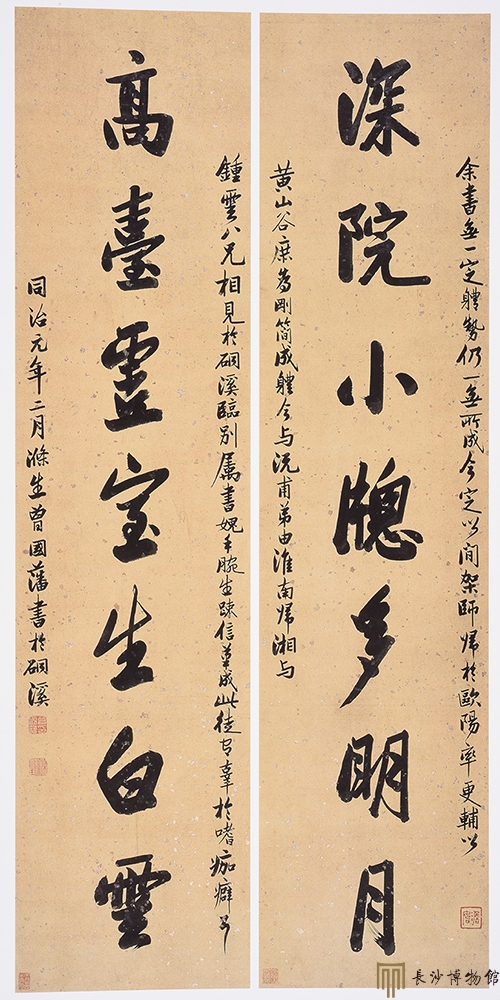 余書無一定體勢仍一無所成今定以間架師歸於歐陽率更輔以
深院小牕多明月
黃山谷庶為剛簡成體今与沅甫弟由淮南歸湘与
鍾雲八兄相見於硐溪臨別屬書媿手腕生疎信筆成此徒有辜於嗜痂癖耳
高臺虛室生白雲
同治元年二月滌生曾國藩書於硐溪
長沙博物館